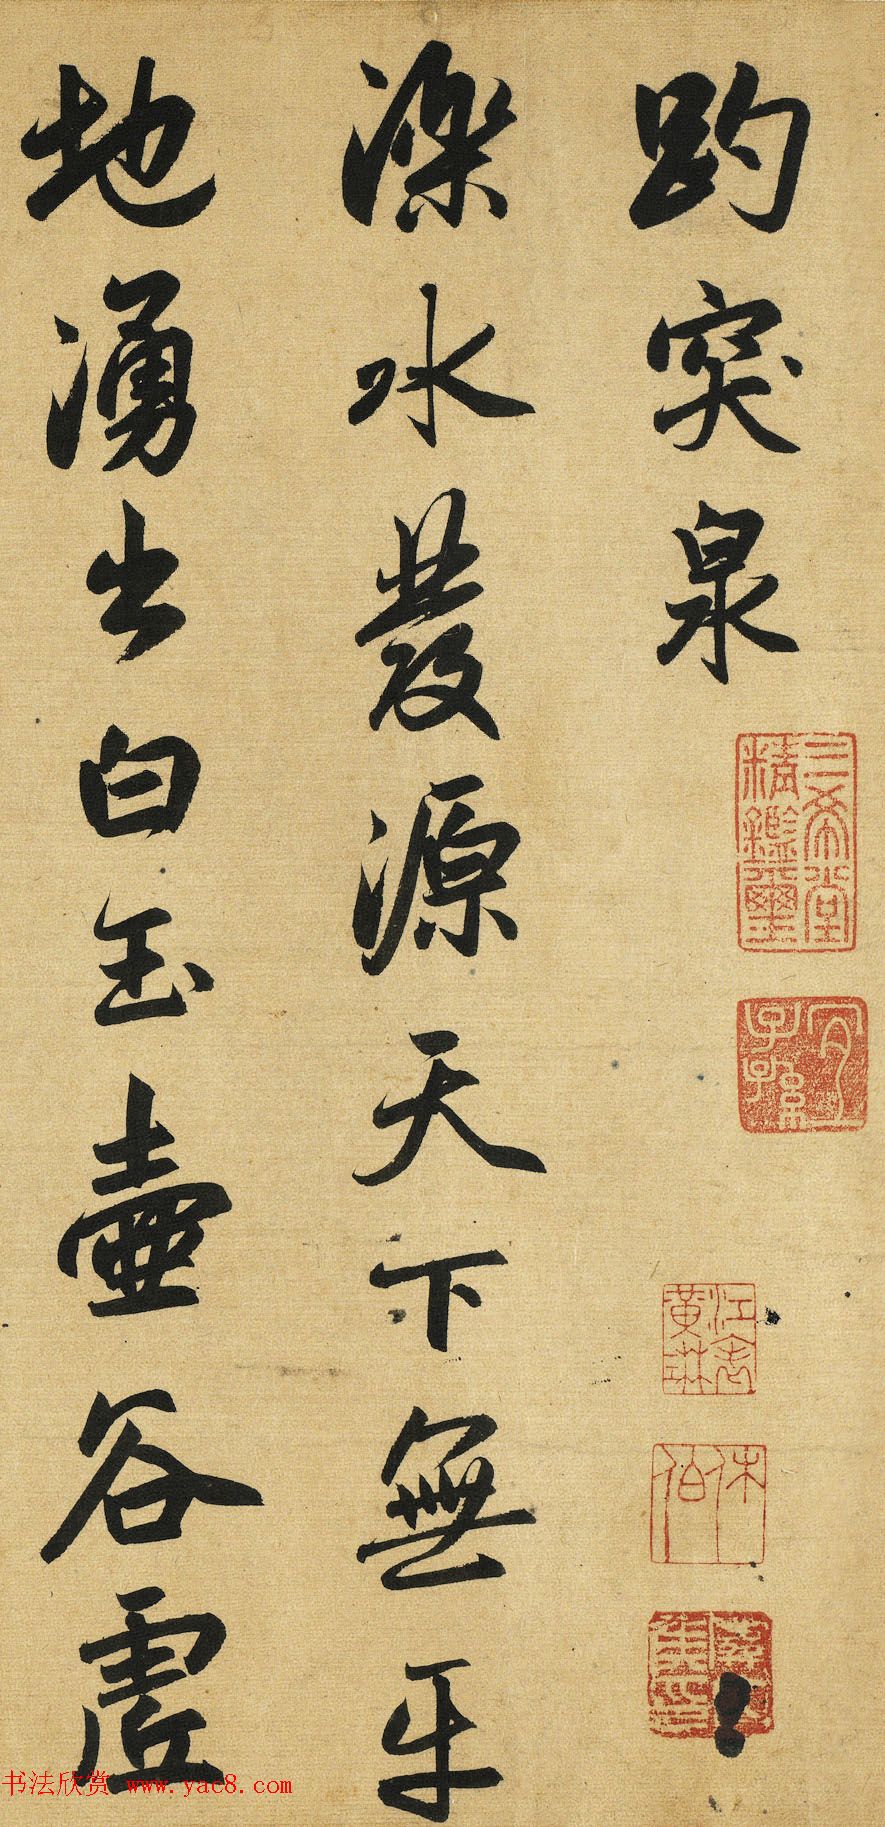 趵突泉
濼水發源天下無平
地湧出白玉壺谷虛
三希堂精鑑璽
宜子孫
江表黃琳
休伯
书法欣赏 www.yac8.com